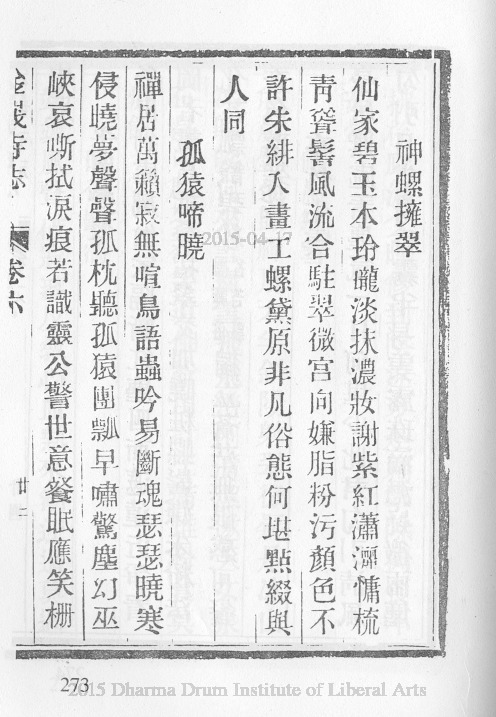 神螺擁翠
仙家碧玉本玲瓏淡抹濃妝謝紫紅瀟灑慵梳
青聳髻風流合駐翠微宮向嫌脂粉污顏色不
許朱緋入畫工螺黛原非凡俗態何堪點綴與
人同
孤猿啼曉
禪居萬籟寂無喧鳥語蟲吟易斷魂瑟瑟曉寒
侵曉夢聲聲孤枕聽孤猿團瓢早嘯驚塵幻巫
峽哀嘶拭淚痕若識靈公警世意餐眠應笑柵
寺志 卷六 廿二
2015-04-17
273
2015 Dharma Drum Institute of Liberal Arts